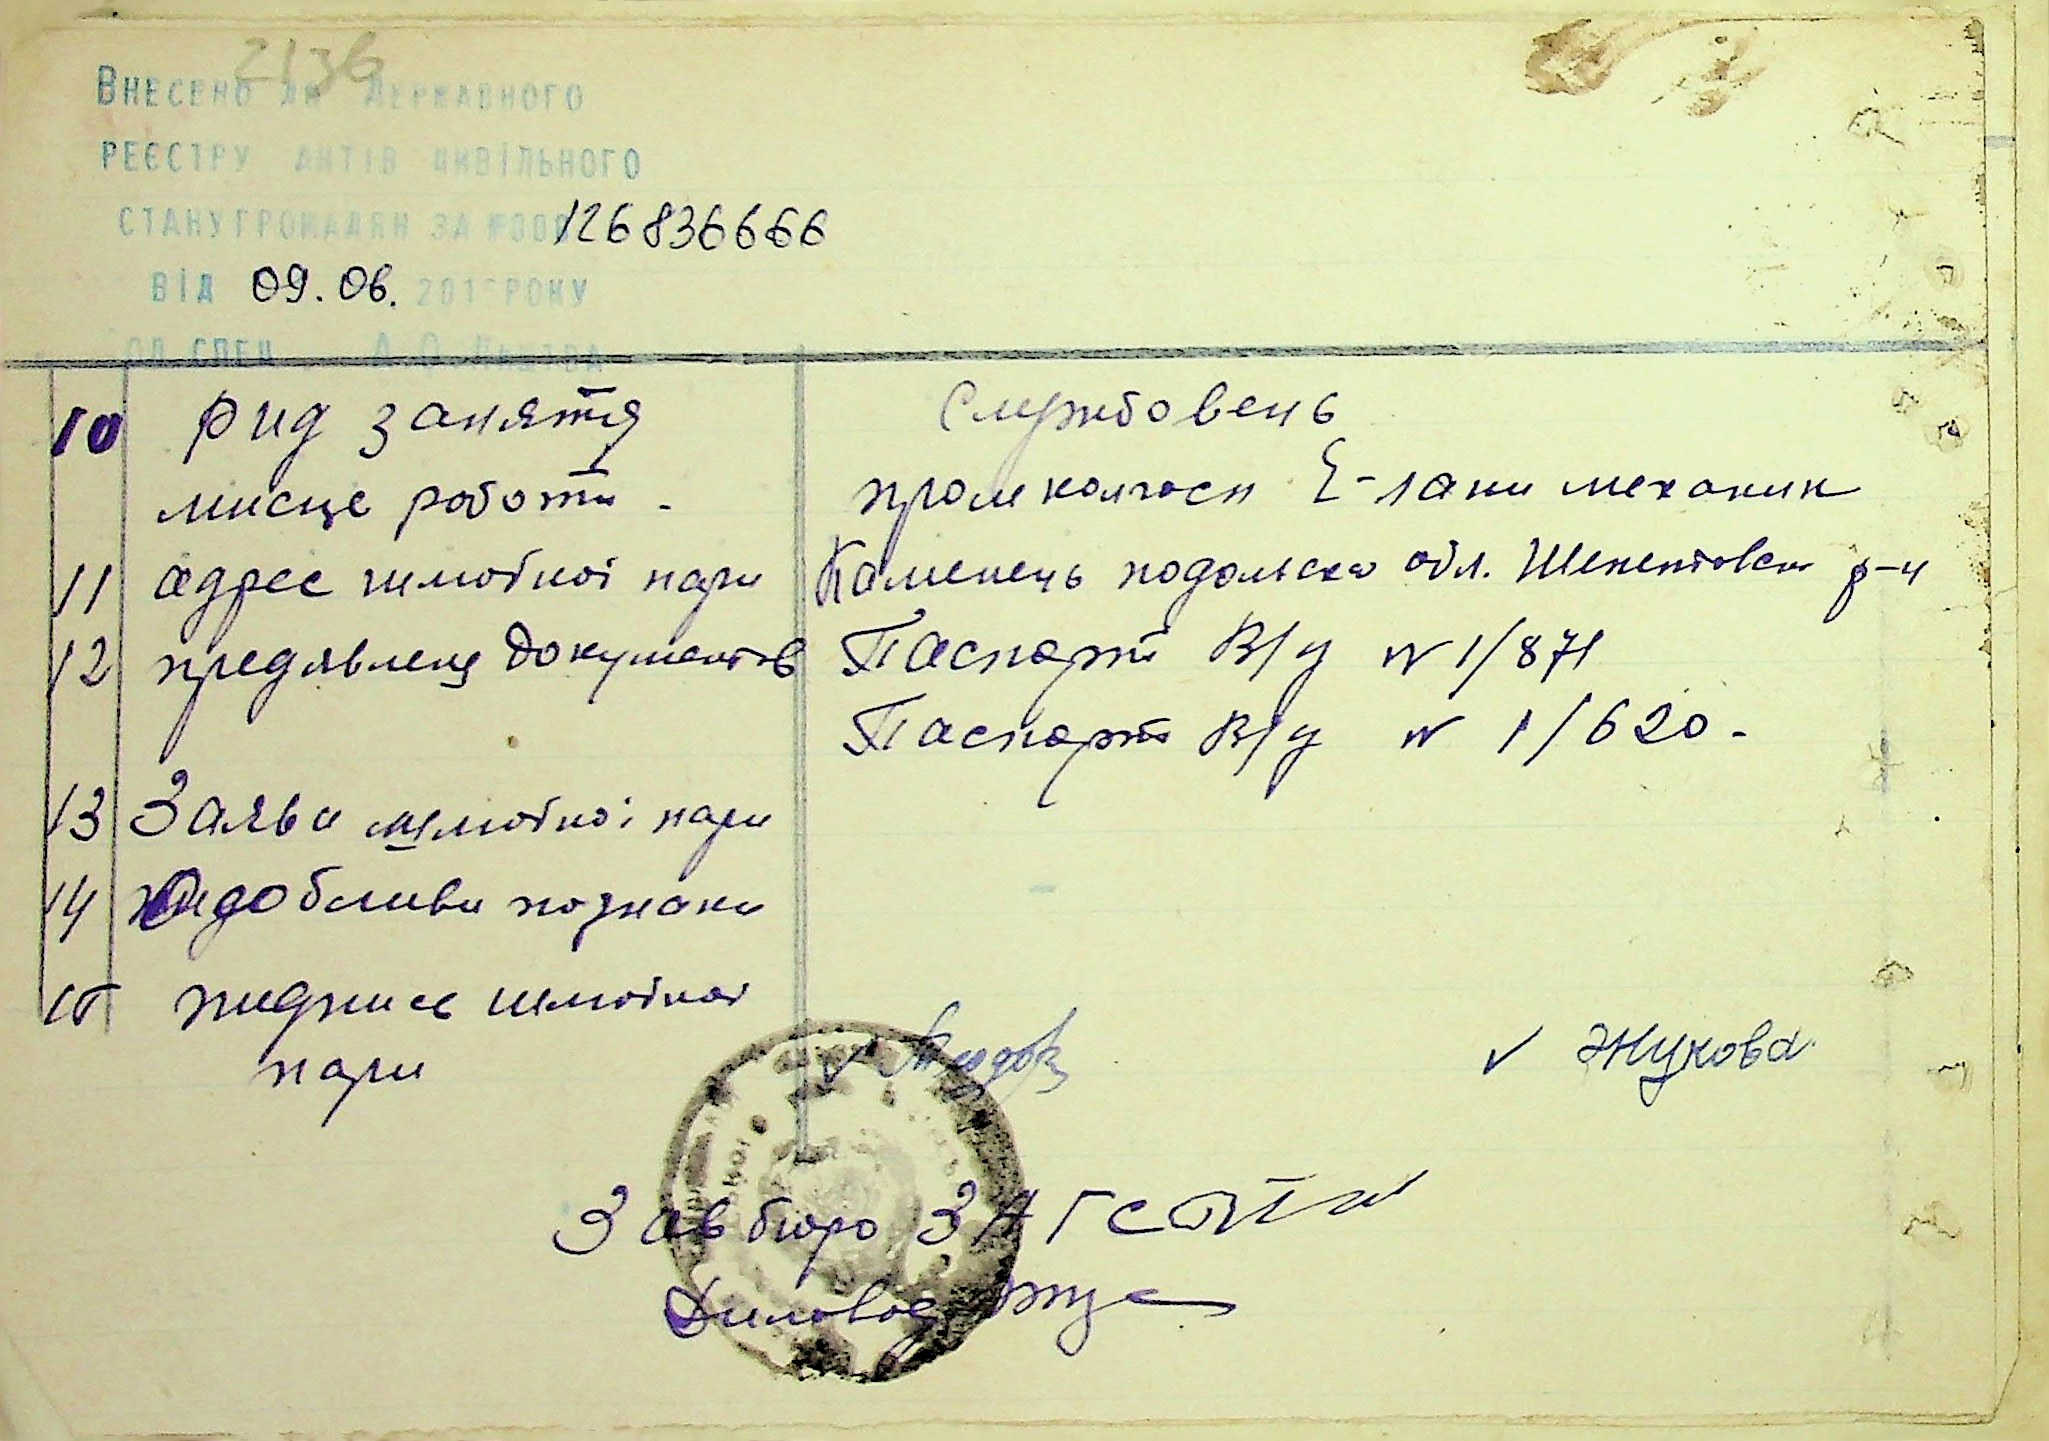 2136
Внесено до Державного
реєстру актів цивільного
стану громадян за №000126836666
від 09.06. 201 року
10 Рид заняття Службовець
мисце роботи - механик
11 адрес шлюбної пари Каменець подольска обл. Шепетовски р-н
12 предявлени документов Паспорт В/у N 1/871
Паспорт В/у N 1/620 -
13 Заява шлюбної пари
14 Подобливи познаки
15 пидписе шлюбної V V Жукова
пари
Зав бюро ЗАГС
Диловод